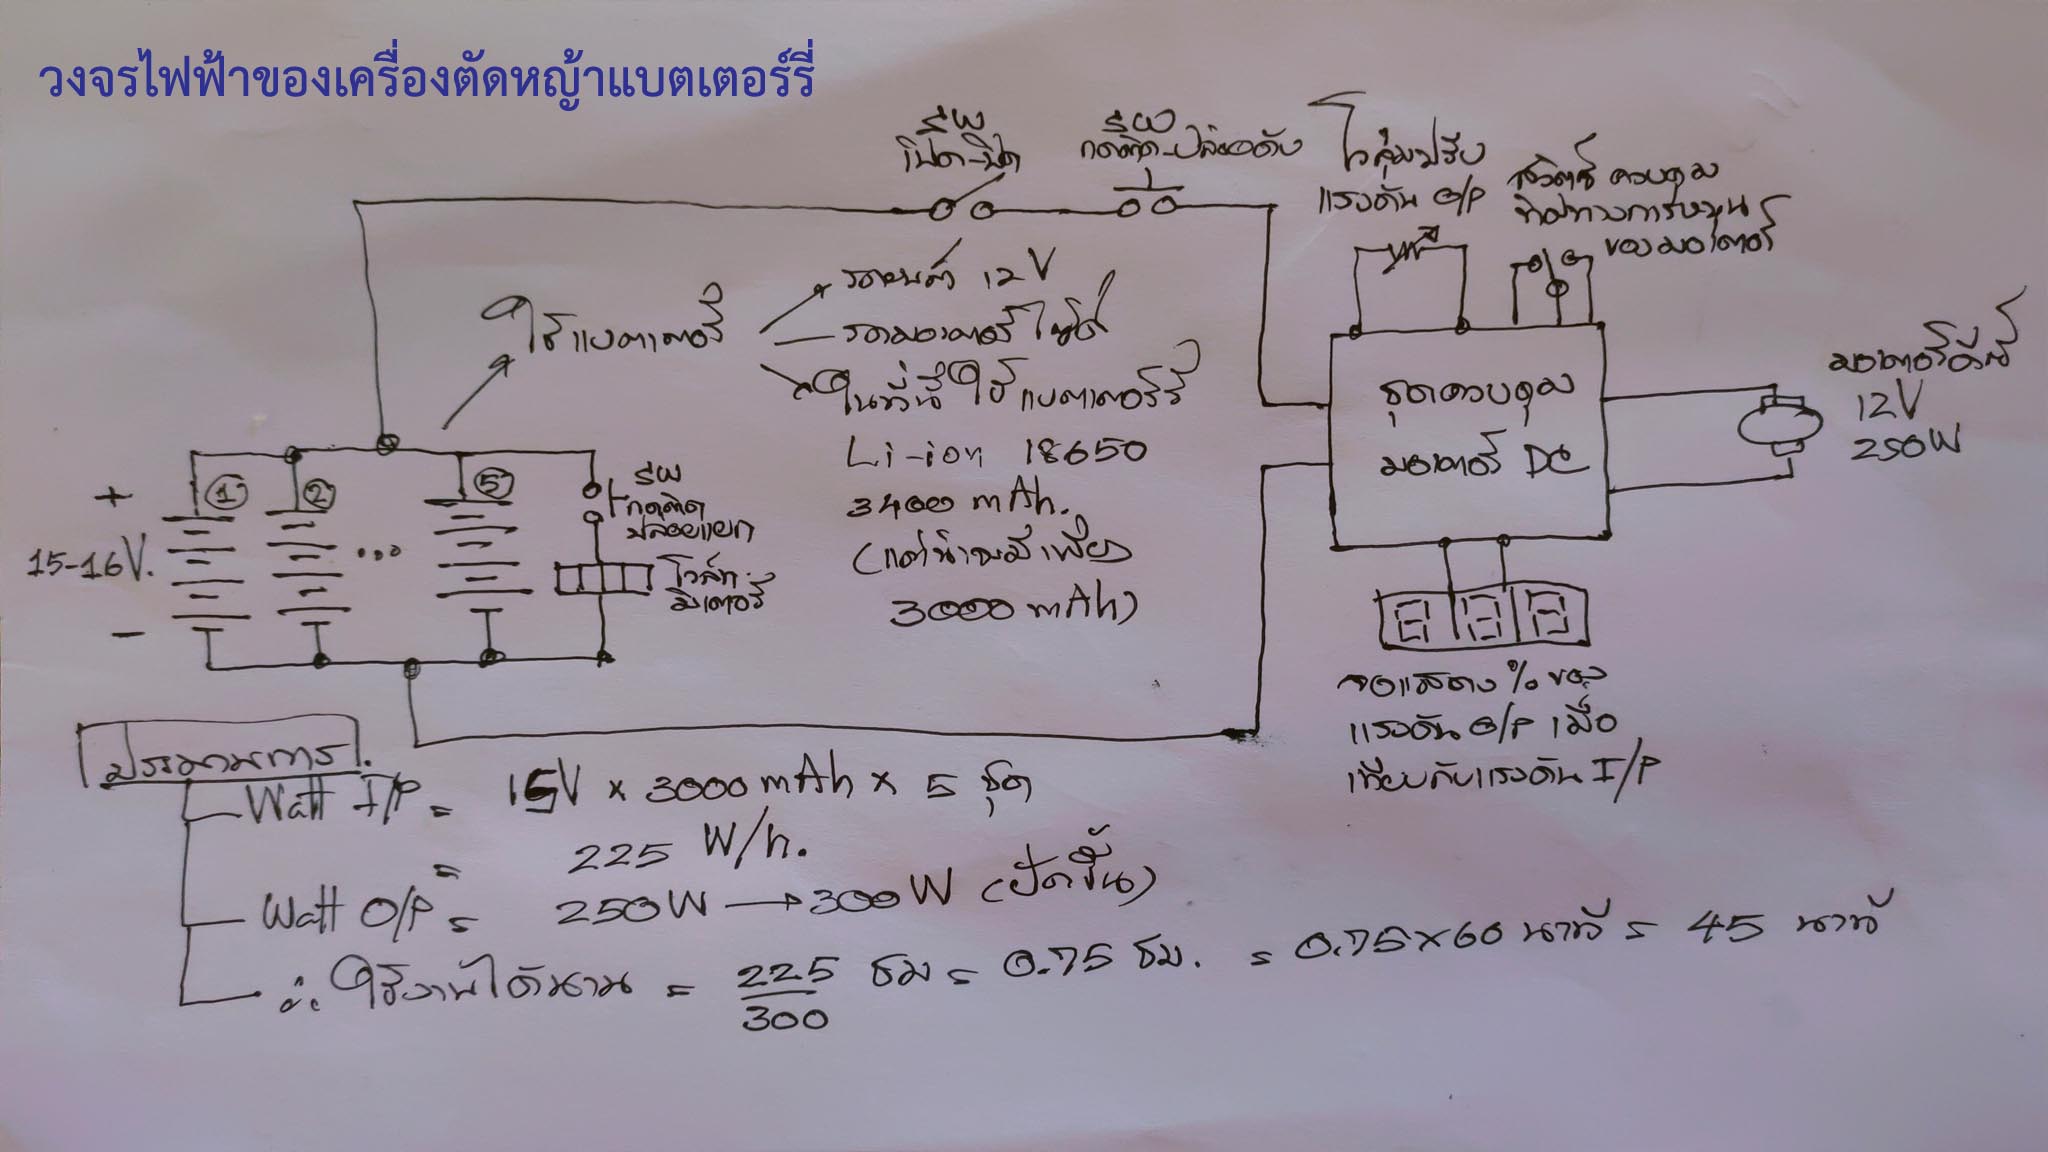 วงจรไฟฟ้าของเครื่องตัดหญ้าแบตเตอร์รี่
SW
เปิด-ปิด
SW
กดติด-ปล่อยดับ
โวลุ่มปรับ
แรงดัน O/P
สวิตช์ควบคุม
ทิศทางการหมุน
ของมอเตอร์
ใช้แบตเตอรี่
รถยนต์ 12V
รถมอเตอร์ไซด์
ในที่นี้ใช้แบตเตอร์รี่
Li-ion 18650
3400 mAh.
(แต่น่าจะมีเพียง
3000 mAh)
+
15-16V.
-
1
2
...
5
SW
กดติด
ปล่อยแยก
โวล์ท
มิเตอร์
ชุดควบคุม
มอเตอร์ DC
มอเตอร์ดีซี
12V
250W
8 8 8
จอแสดง % ของ
แรงดัน O/P เมื่อ
เทียบกับแรงดัน I/P
ประมาณการ
Watt I/P = 15V x 3000 mAh x 5 ชุด
= 225 W/h.
Watt O/P = 250W → 300W (ปัดขึ้น)
∴ ใช้งานได้นาน = 225/300 ชม = 0.75 ชม. = 0.75 x 60 นาที = 45 นาที